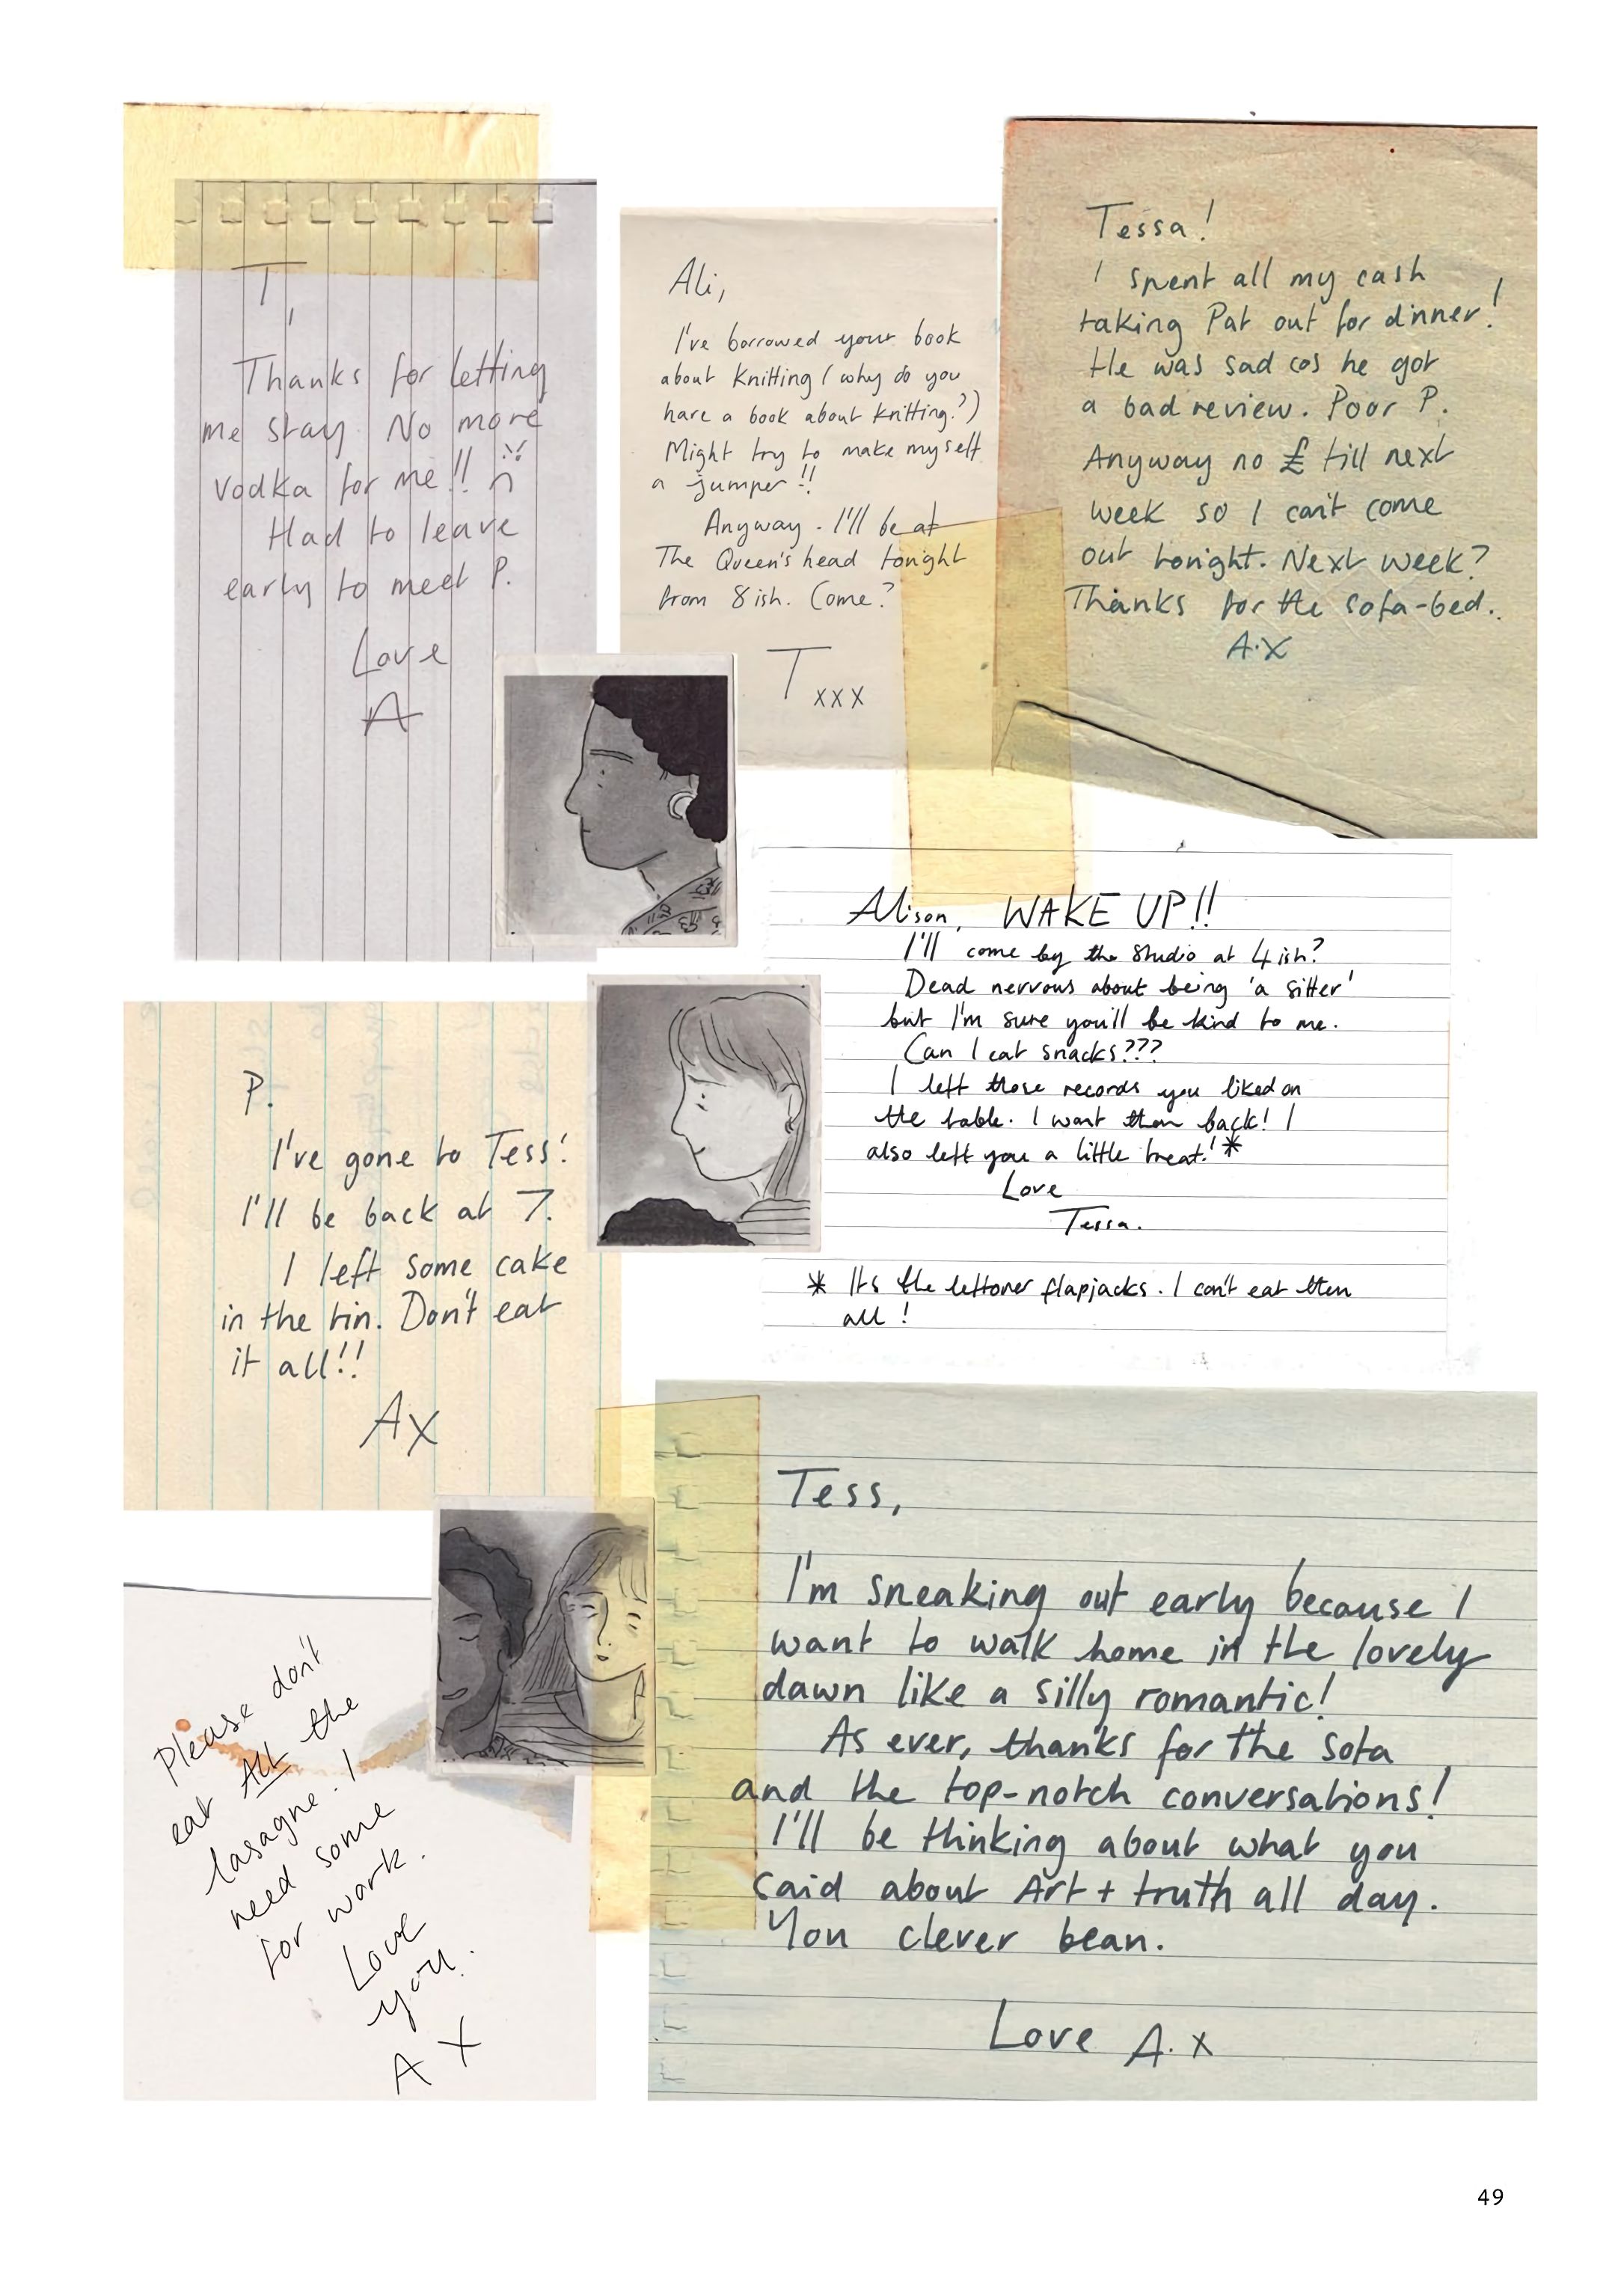 T,
Thanks for letting
me stay. No more
vodka for me!!
Had to leave
early to meet P.
Love
A
Ali,
I've borrowed your book
about Knitting (why do you
have a book about knitting?)
Might try to make myself
a jumper!!
Anyway. I'll be at
The Queen's head tonight
from 8ish. Come?
T xxx
Tessa!
I spent all my cash
taking Pat out for dinner!
He was sad cos he got
a bad review. Poor P.
Anyway no £ till next
week so I can't come
out tonight. Next week?
Thanks for the sofa-bed.
A.X
Alison, WAKE UP!!
I'll come by the studio at 4ish?
Dead nervous about being 'a sitter'
but I'm sure you'll be kind to me.
Can I eat snacks???
I left those records you liked on
the table. I want them back! I
also left you a little treat!*
Love
Tessa.
* Its the leftover flapjacks. I can't eat them
all!
P.
I've gone to Tess'.
I'll be back at 7.
I left some cake
in the tin. Don't eat
it all!!
AX
Please don't
eat ALL the
lasagne. I
need some
for work.
Love
you.
A X
Tess,
I'm sneaking out early because I
want to walk home in the lovely
dawn like a silly romantic!
As ever, thanks for the sofa
and the top-notch conversations!
I'll be thinking about what you
said about Art + truth all day.
You clever bean.
Love A.x
49